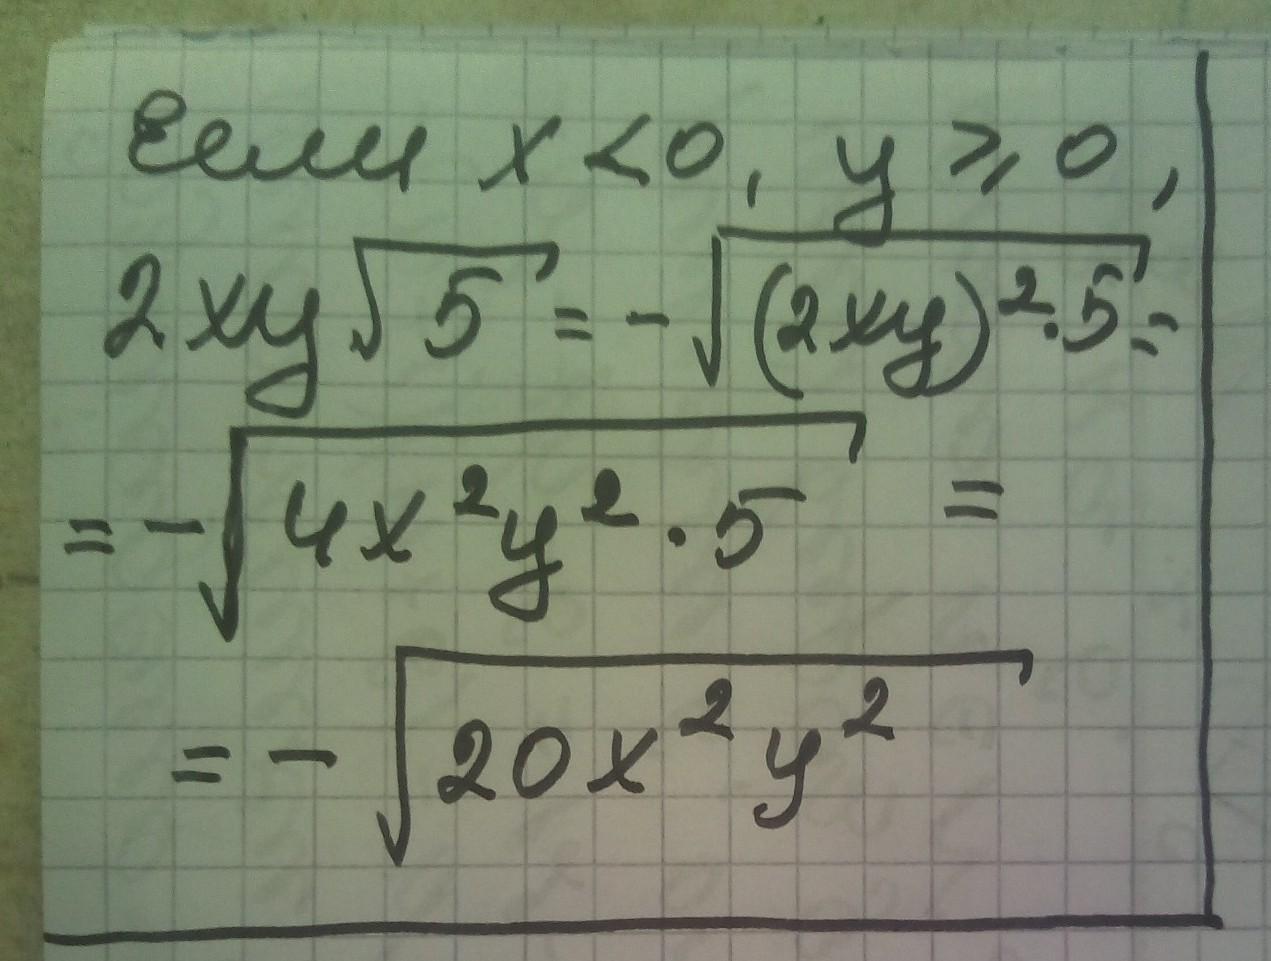 Если x < 0, y ⩾ 0,
2xy√5 = -√(2xy)²·5 =
= -√4x²y²·5 =
= -√20x²y²